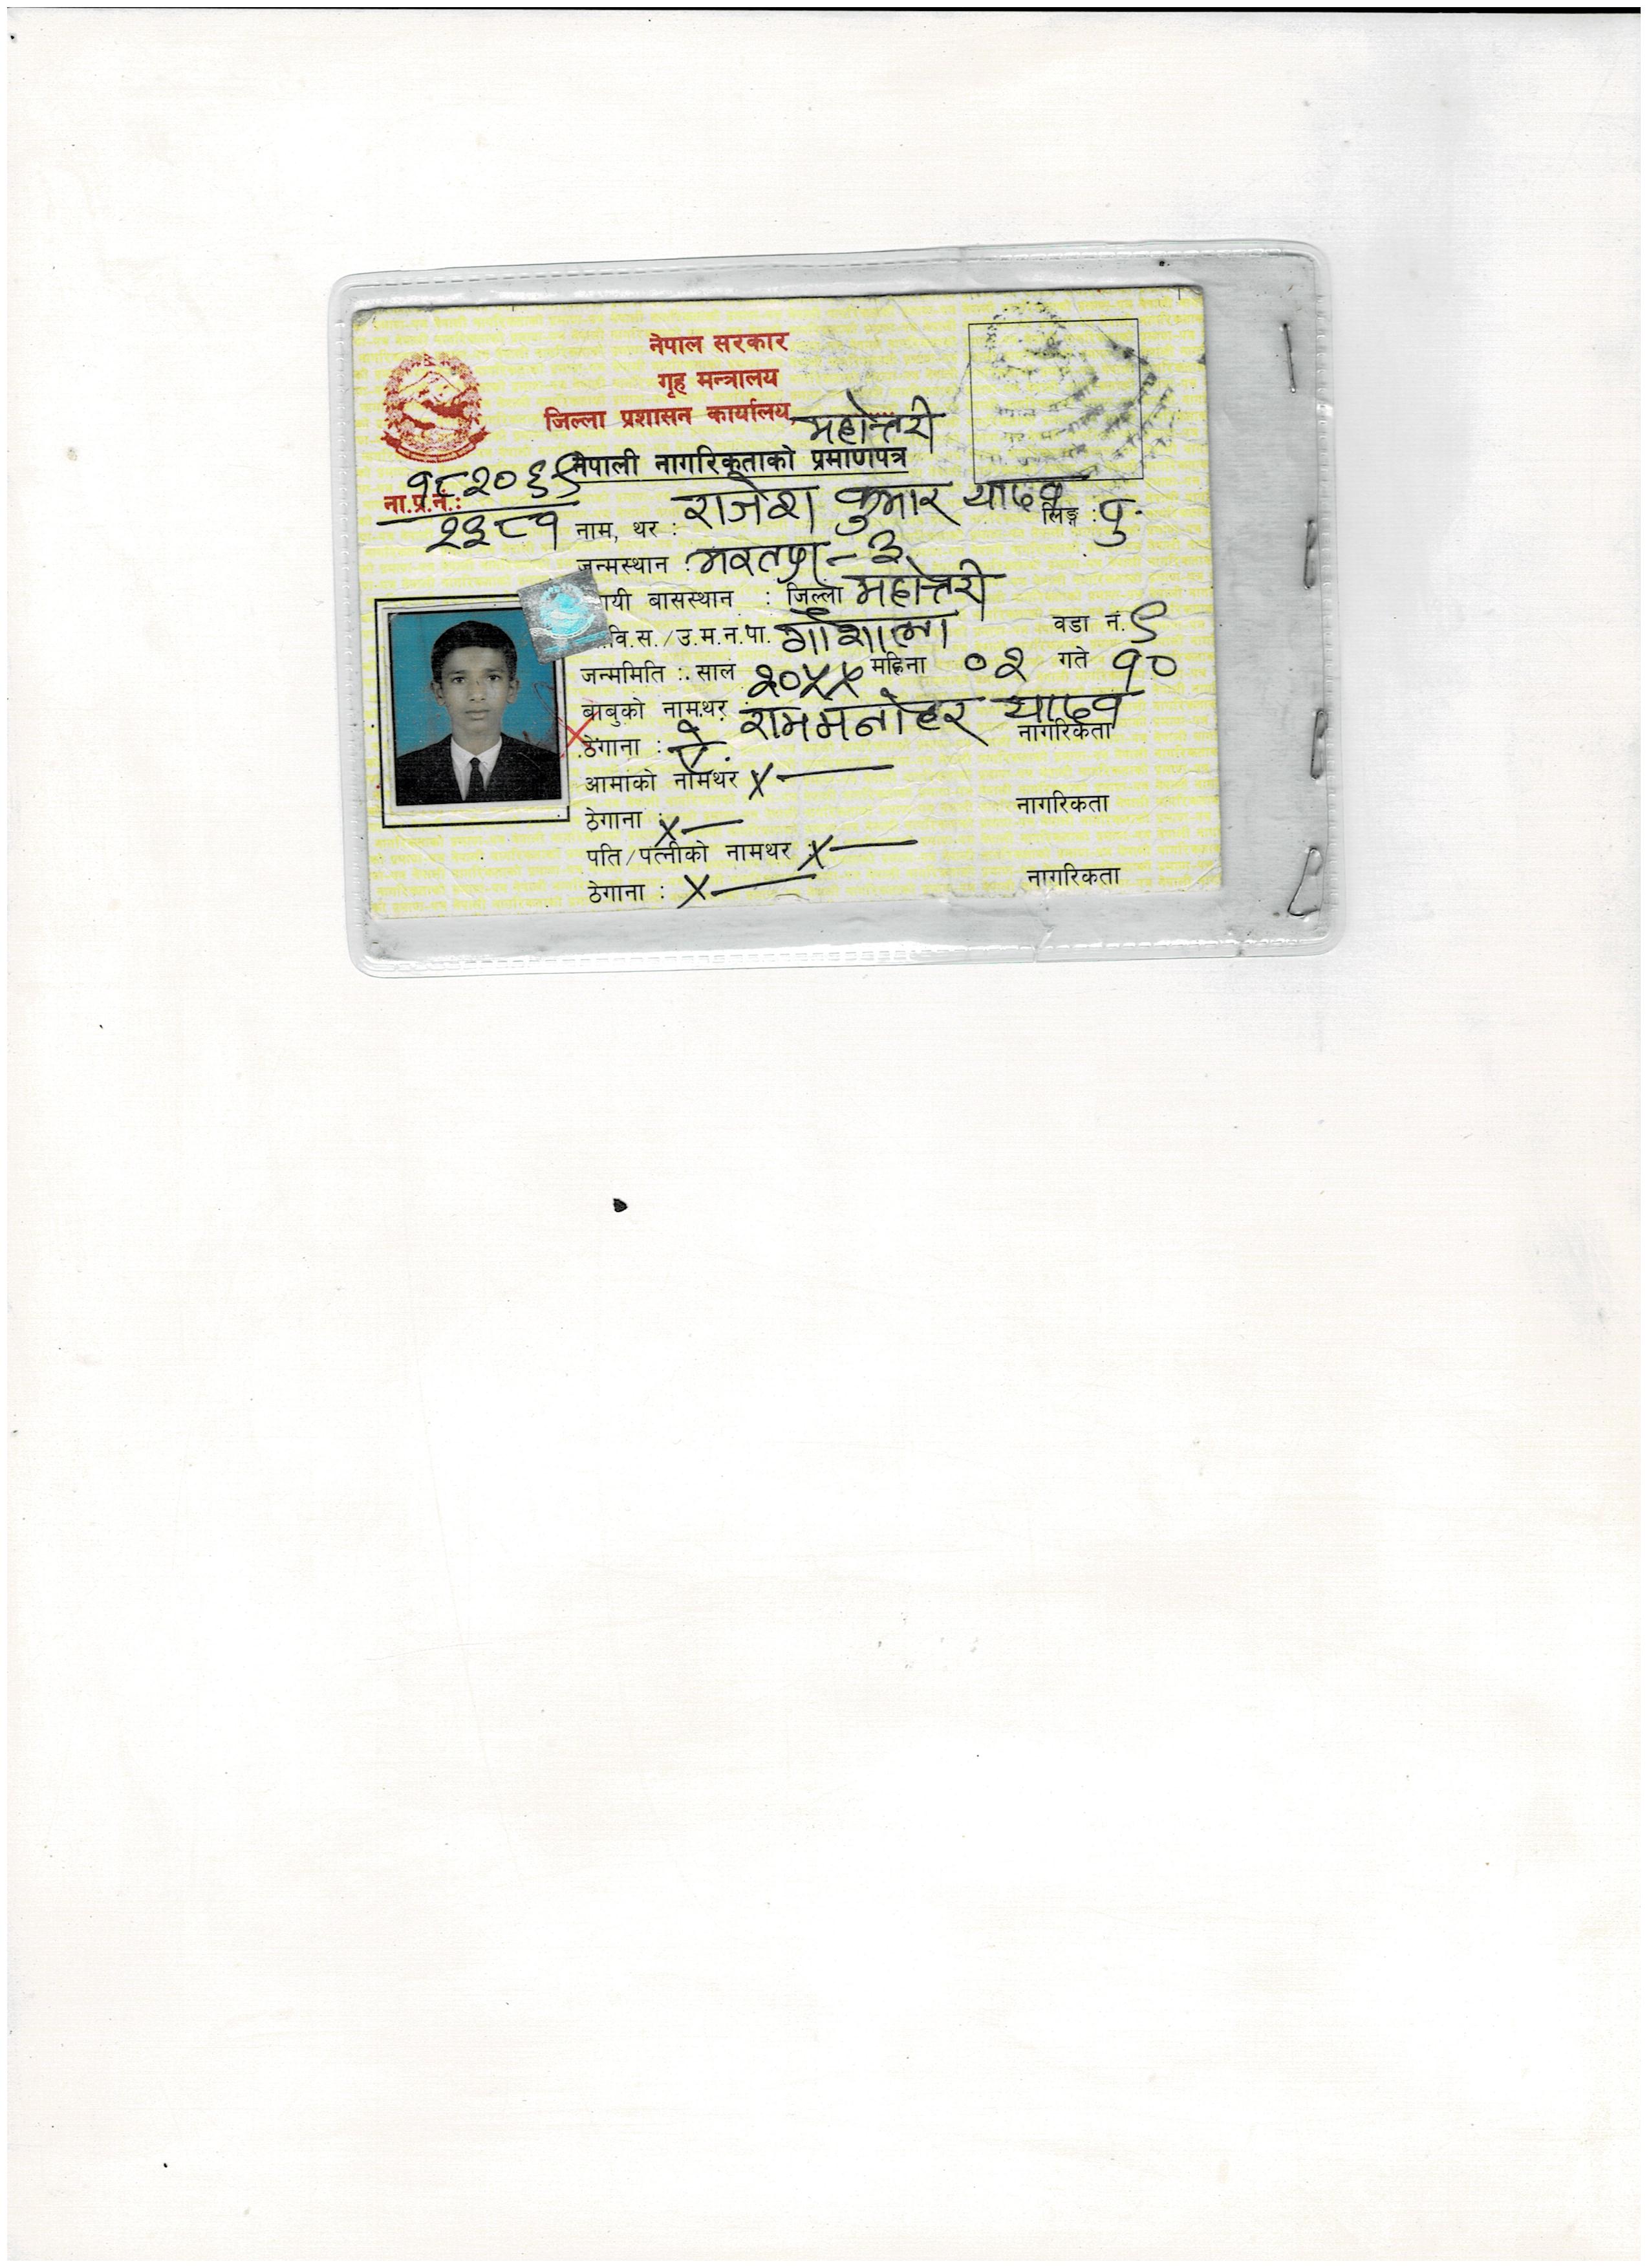 नेपाल सरकार
गृह मन्त्रालय
जिल्ला प्रशासन कार्यालय, महोत्तरी
नेपाली नागरिकताको प्रमाणपत्र
ना.प्र.नं.: १८२०६९
२३८१
नाम, थर : राजेश कुमार यादव लिङ्ग : पु.
जन्मस्थान : भरतपुर - ३
यी बासस्थान : जिल्ला महोत्तरी
वि.स./उ.म.न.पा. गौशाला वडा नं. ९
जन्ममिति : साल २०५५ महिना ०२ गते १०
बाबुको नामथर राममनोहर यादव
ठेगाना : ऐ. नागरिकता
आमाको नामथर X
ठेगाना : X नागरिकता
पति/पत्नीको नामथर : X
ठेगाना : X नागरिकता